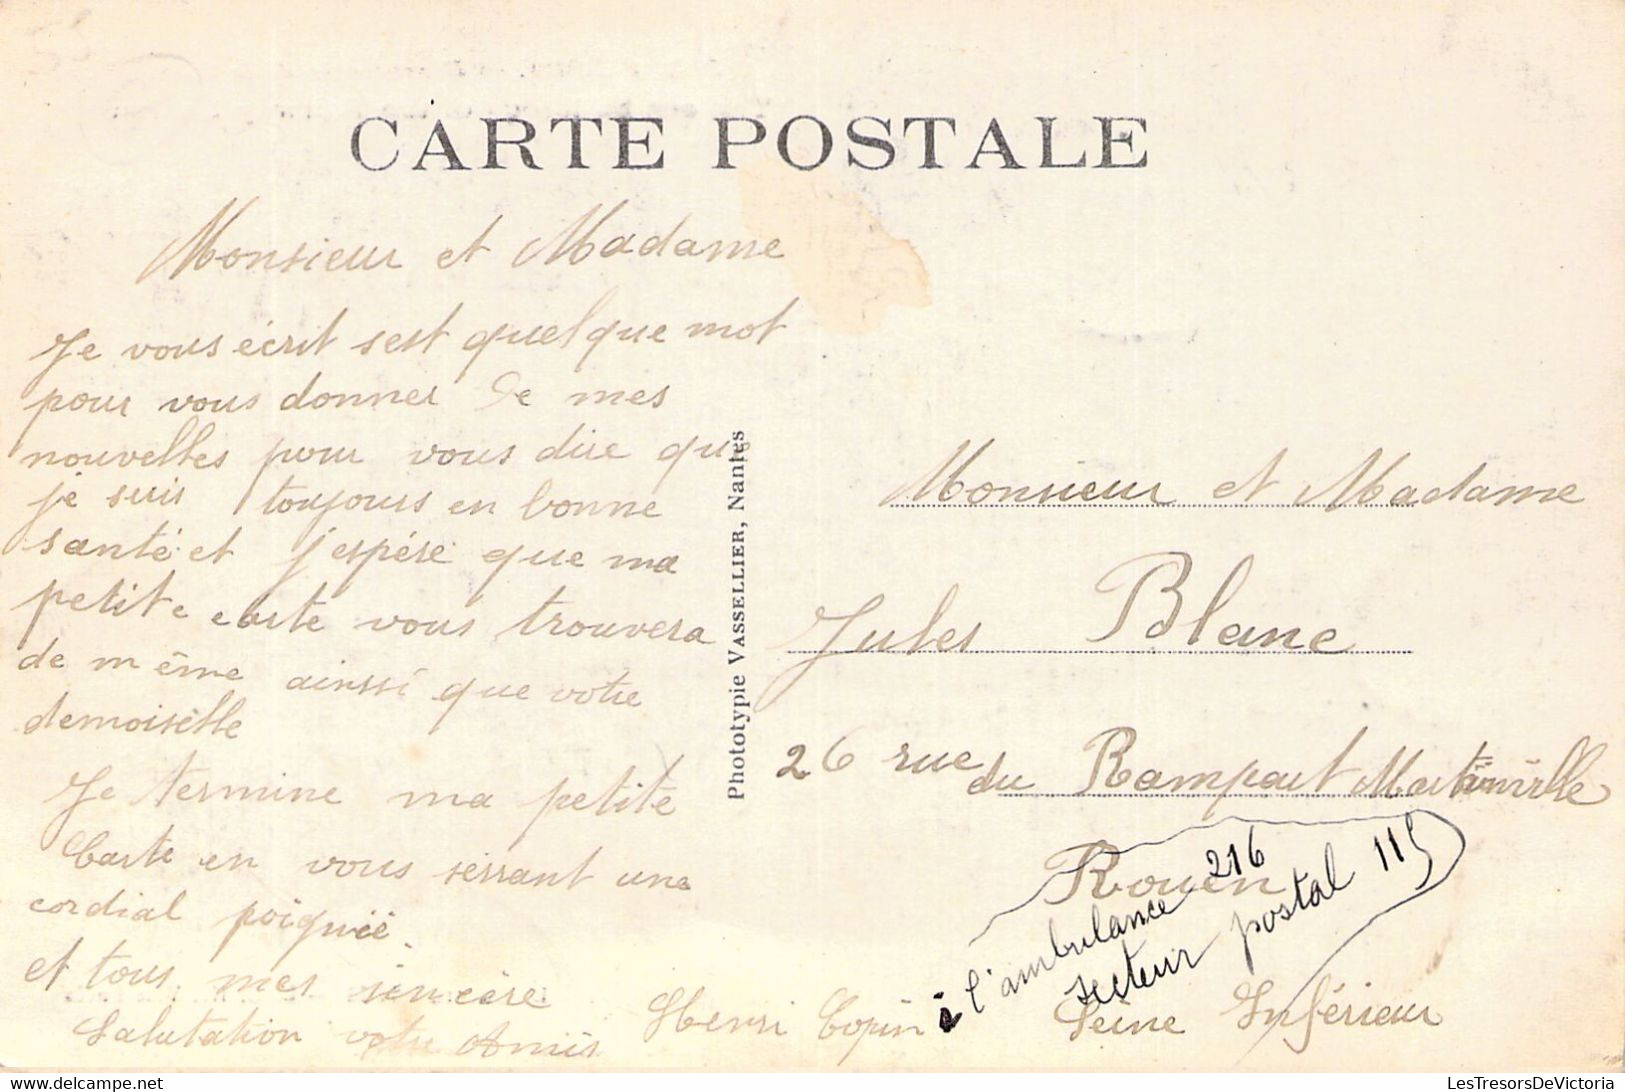 CARTE POSTALE
Monsieur et Madame
Je vous écrit sest quelque mot
pour vous donner de mes
nouvelles pour vous dire que
je suis toujours en bonne
santé et j'espére que ma
petite carte vous trouvera
de même ainssi que votre
demoiselle
Je termine ma petite
Carte en vous serrant une
cordial poignée
et tous mes sincère
Salutation votre Amis
Henri Copin
Phototypie VASSELLIER, Nantes
Monsieur et Madame
Jules Blanc
26 rue du Rampart Martinville
Rouen
à l'ambulance 216
secteur postal 115
Seine Inférieur
LesTresorsDeVictoria